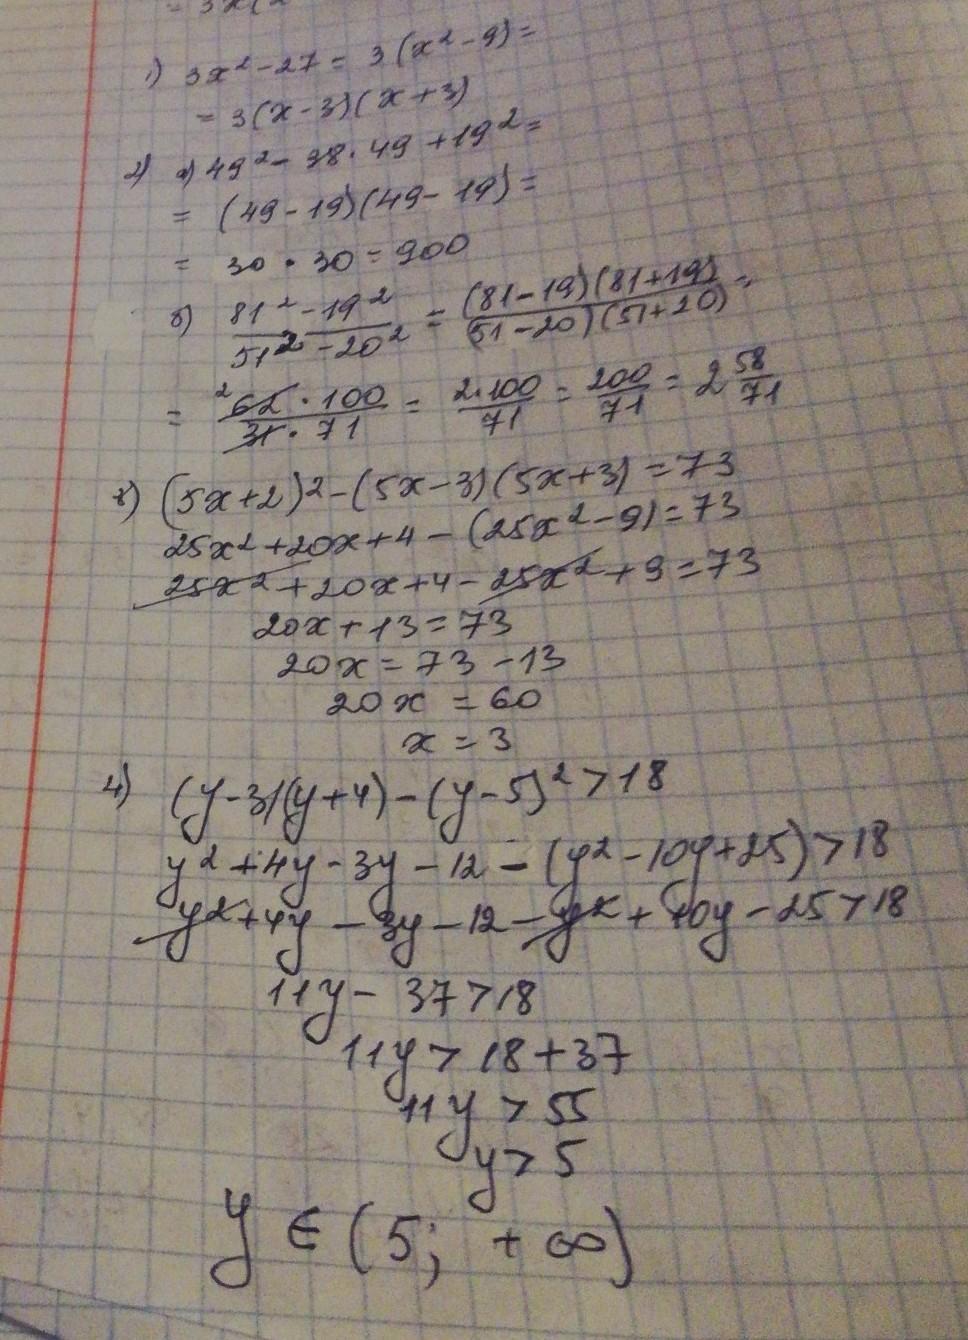 1) 3x² - 27 = 3(x² - 9) =
= 3(x - 3)(x + 3)
2) а) 49² - 38 · 49 + 19² =
= (49 - 19)(49 - 19) =
= 30 · 30 = 900
б) (81² - 19²)/(51² - 20²) = ((81 - 19)(81 + 19))/((51 - 20)(51 + 20)) =
= ² (62 · 100)/(31 · 71) = (2 · 100)/71 = 200/71 = 2 58/71
(5x + 2)² - (5x - 3)(5x + 3) = 73
25x² + 20x + 4 - (25x² - 9) = 73
25x² + 20x + 4 - 25x² + 9 = 73
20x + 13 = 73
20x = 73 - 13
20x = 60
x = 3
4) (y - 3)(y + 4) - (y - 5)² > 18
y² + 4y - 3y - 12 - (y² - 10y + 25) > 18
y² + 4y - 3y - 12 - y² + 10y - 25 > 18
11y - 37 > 18
11y > 18 + 37
11y > 55
y > 5
y ∈ (5; +∞)